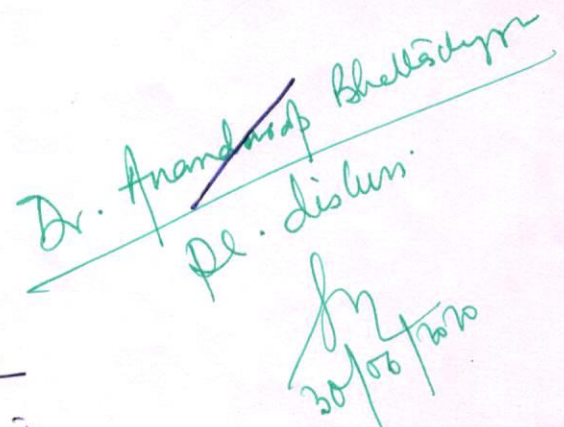 Dr. Anandarup Bhattacharyya
Pl. discuss.
30/06/2020